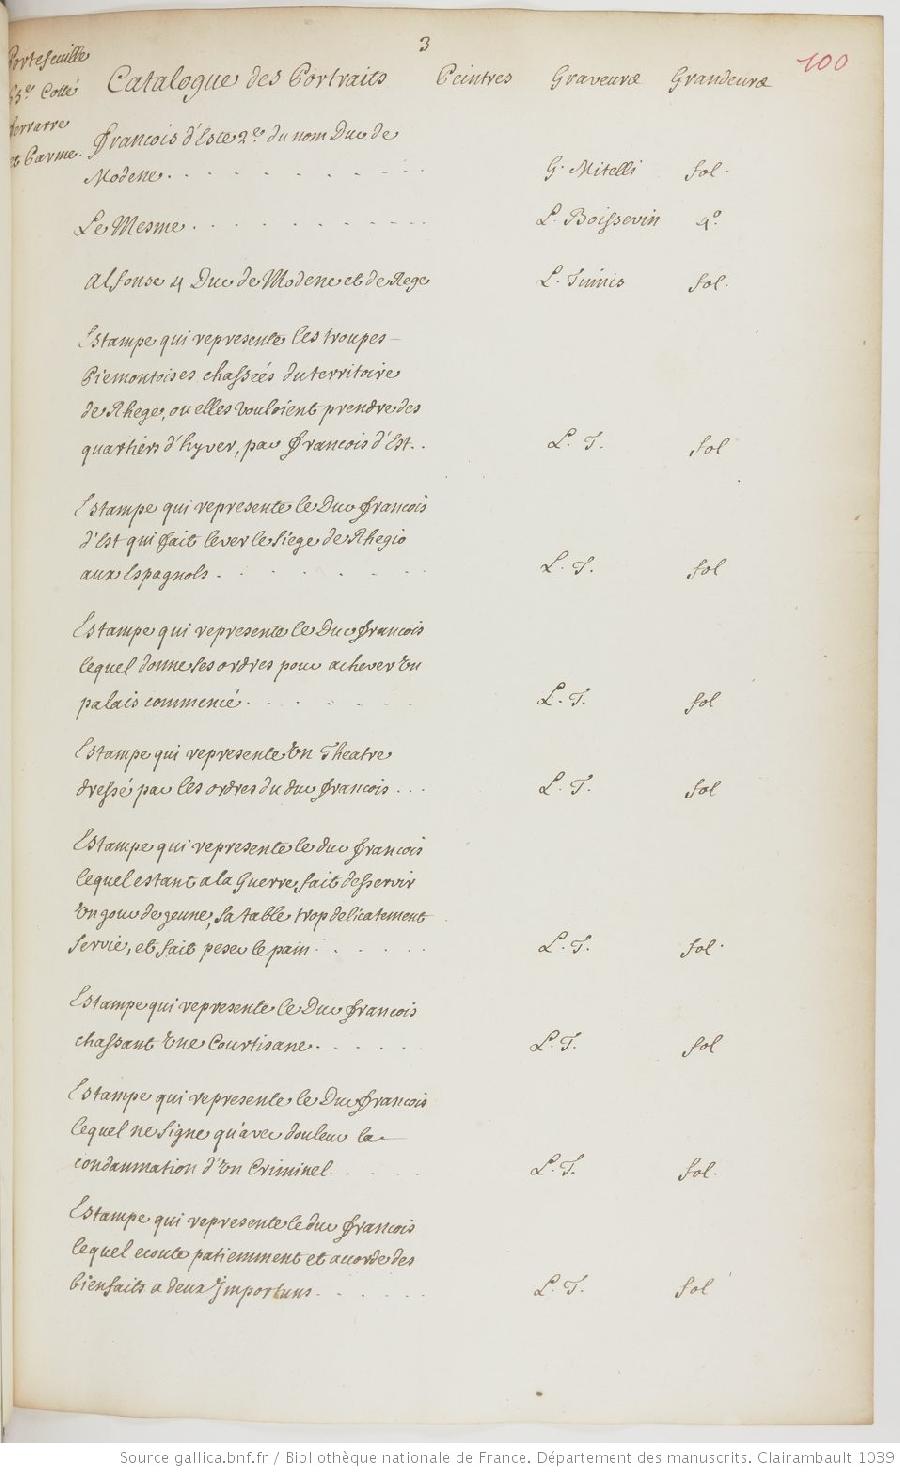 3
100
Portefeuille
55.e Cotté
ferrarre
et Parme.
Catalogue des Portraits Peintres Graveurs Grandeurs
François d'Este 2.e du nom Duc de
Modene. G. Mitelli fol.
Le Mesme L. Boissevin 4.o
Alfonse 4 Duc de Modene et de Rege L. Tinnis fol.
Estampe qui represente les troupes
Piemontoises chassées du territoire
de Rhege, ou elles vouloient prendre des
quartiers d'hyver, par françois d'Est. L. T. fol
Estampe qui represente le Duc françois
d'Est qui fait lever le siege de Rhegio
aux Espagnols. L. T. fol
Estampe qui represente le Duc françois
lequel donne ses ordres pour achever un
palais commencé. L. T. fol
Estampe qui represente un Theatre
dressé par les ordres du duc françois. L. T. fol
Estampe qui represente le duc françois
lequel estant a la Guerre, fait desservir
un jour de jeune, sa table trop delicatement
servie, et fait peser le pain. L. T. fol.
Estampe qui represente le Duc françois
chassant une Courtisane. L. T. fol
Estampe qui represente le Duc françois
lequel ne signe qu'avec douleur la
condamnation d'un Criminel L. T. fol.
Estampe qui represente le duc françois
lequel ecoute patiemment et accorde des
bienfaits a deux Importuns. L. T. fol
Source gallica.bnf.fr / Bibliothèque nationale de France. Département des manuscrits. Clairambault 1039